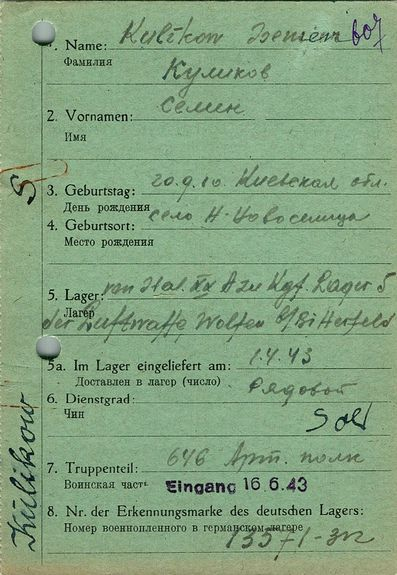 1. Name: Kulikow Semen 607
Фамилия
Куликов
2. Vornamen: Семен
Имя
3. Geburtstag: 20.9.10. Киевская обл.
День рождения
4. Geburtsort: село Н-Новоселица
Место рождения
5. Lager:
Лагер
Kgf. Lager 5
der Luftwaffe Wolfen b/Bitterfeld
5a. Im Lager eingeliefert am: 1.4.43
Доставлен в лагер (число)
6. Dienstgrad: Рядовой
Чин
Sold
7. Truppenteil: 646 Арт. полк
Воинская часть
Eingang 16.6.43
8. Nr. der Erkennungsmarke des deutschen Lagers:
Номер военнопленного в германском лагере
Kulikow
S